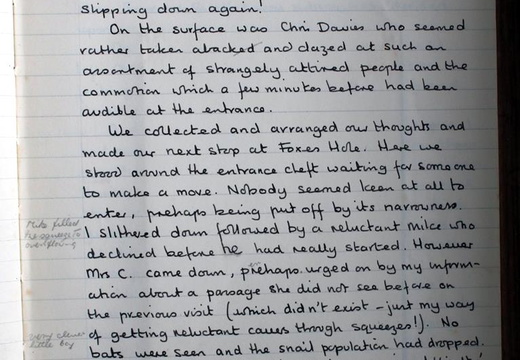 slipping down again!
On the surface was Chris Davies who seemed
rather taken aback and dazed at such an
assortment of strangely attired people and the
commotion which a few minutes before had been
audible at the entrance.
We collected and arranged our thoughts and
made our next stop at Foxes Hole. Here we
stood around the entrance cleft waiting for someone
to make a move. Nobody seemed keen at all to
enter, prehaps being put off by its narrowness.
Mike filled
the squeeze to
overflowing
I slithered down followed by a reluctant Mike who
declined before he had really started. However
Mrs C. came down, prehaps urged on by my inform-
ation about a passage she did not see before on
the previous visit (which didn't exist - just my way
very clever
little boy
of getting reluctant cavers through squeezes!). No
bats were seen and the snail population had dropped.